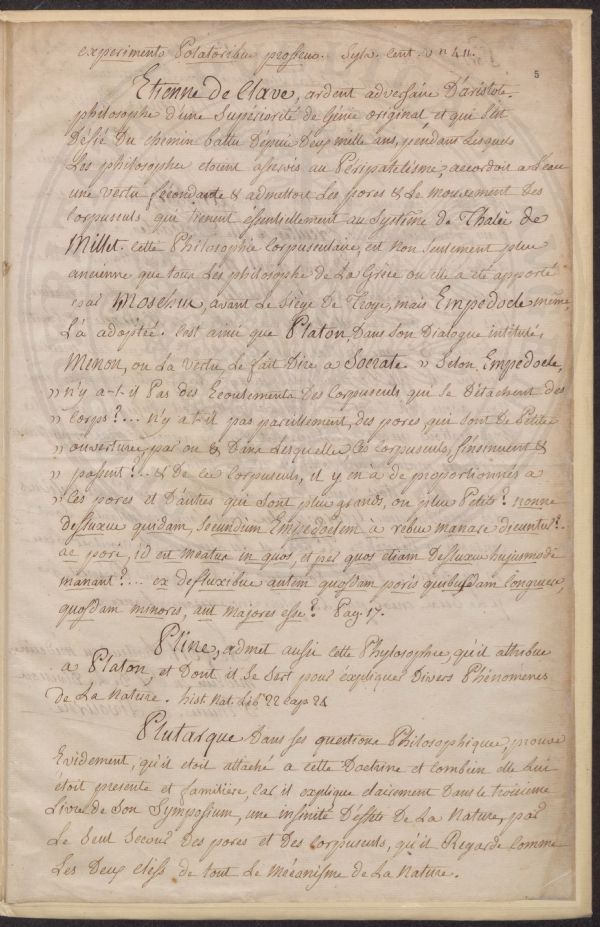 experimento Potatoribus prossens. Sylv. Cent. v n 411.
5
Etienne de Clave, ardent adversaire D'aristote.
philosophe d'une Superiorité de Génie original, et qui s'est
Défié Du chemin battu Dépuis Deux mille ans, pendant Lesquels
Les philosophes etoient asservis au Péripatetisme, accordoit a L'eau
une vertu fécondante & admettoit Les pores & Le mouvement Des
Corpuscules qui tienent essentiellement au Systême de Thalés de
Millet. Cette Philosophie Corpusculaire, est Non Seulement plus
ancienne que tous Les philosophes de La Gréce ou elle a été apporté
par Moschus, avant Le Siège de Troye, mais Empedocle même,
L'a adoptée. C'est ainsi que Platon, Dans son Dialogue intitulé,
Menon, ou La vertu, Le fait Dire a Socrate. " Selon, Empedocle,
" n'y a-t-il Pas des Ecoulements Des Corpuscules qui se Détachent des
" Corps?... n'y a t-il pas pareillement, des pores qui sont de Petites
" ouvertures, par ou & Dans Lesquelles Ces Corpuscules, s'insinuent &
" passent?.. & De ces Corpuscules, il y en a de proportionnés a
" Ces pores et D'autres qui sont plus grands, ou plus Petits? nonne
defluxus quidam, Secundum Empedoclem à rebus manare dicuntur?..
ac pori, id est meatus in quos, et per quos etiam Defluxus hujusmodi
manant?... ex defluxibus autem quosdam poris quibusdam Congruere,
quosdam minores, aut majores esse? Pag. 17.
Pline, admet aussi cette Phylosophie, qu'il attribue
a Platon, et Dont il Se Sert pour expliquer Divers Phénomenes
De La Nature. hist Nat. Lib 22 cap 24
Plutarque Dans ses questions Philosophiques, prouve
Evidement, qu'il étoit attaché a cette Doctrine et combien elle Lui
étoit presente et familière, Car il explique clairement Dans Le troisieme
Livre de Son Symposium, une infinité D'éffets de La Nature, par
Le Seul Secours Des pores et Des Corpuscules, qu'il Regarde comme
Les Deux Cléfs de tout Le Mécanisme de La Nature.